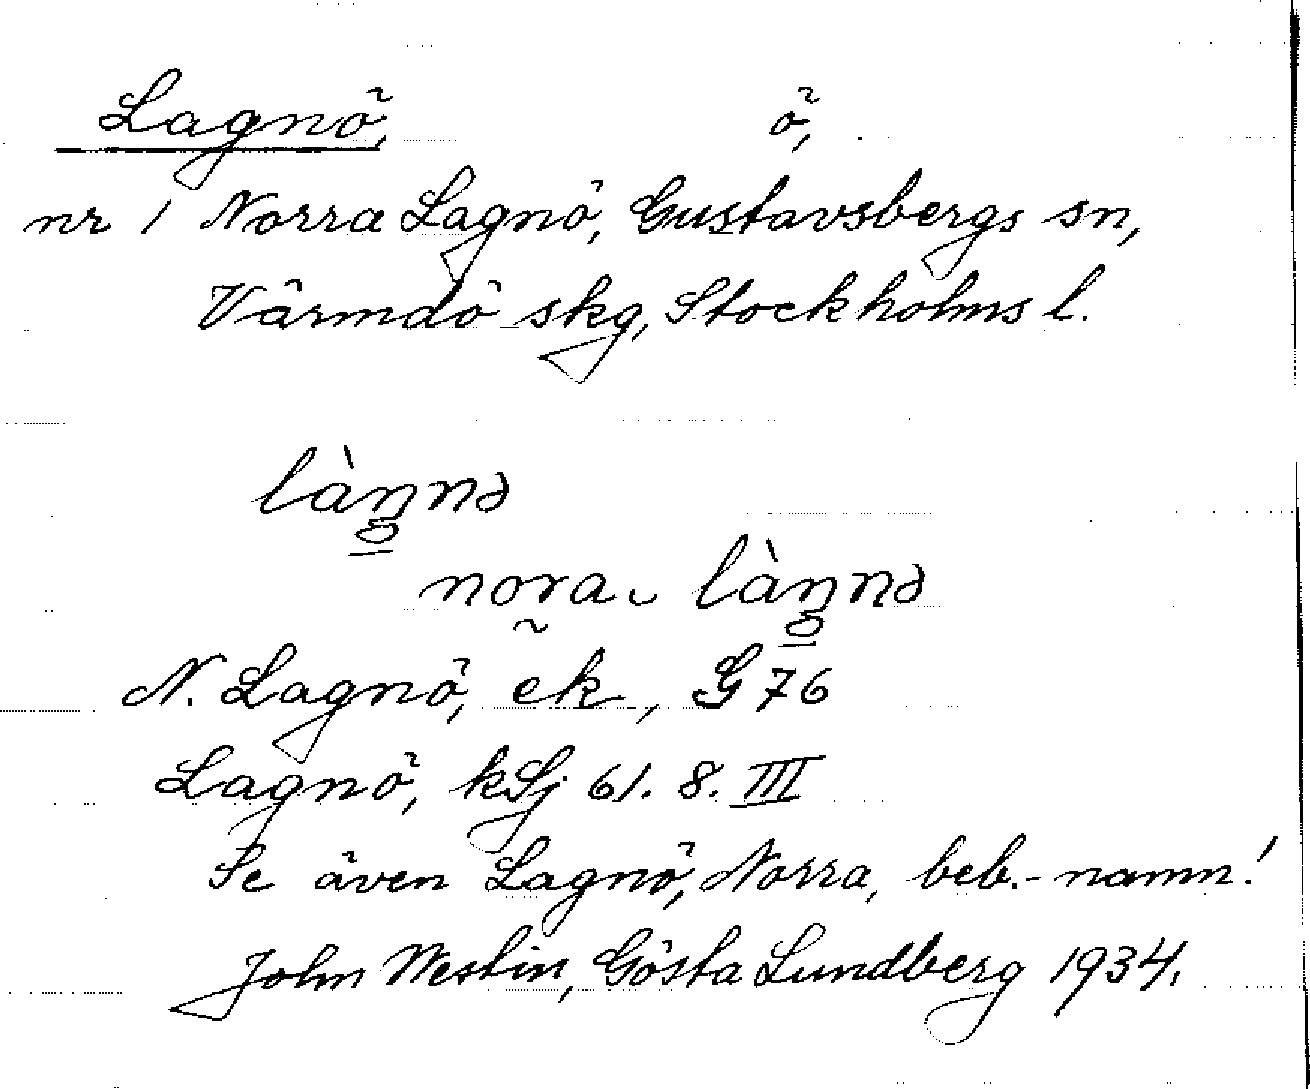 Lagnö, ö,
nr 1 Norra Lagnö, Gustavsbergs sn,
Värmdö skg, Stockholms l.
làŋnə
nora ‿ làŋnə
N. Lagnö, ek, G 76
Lagnö, kSj 61. 8. III
Se även Lagnö, Norra, beb.-namn!
John Westin, Gösta Lundberg 1934.